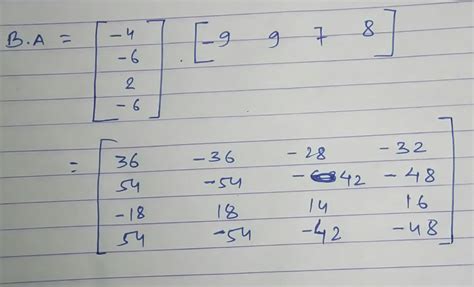 B.A = [-4 -6 2 -6] . [-9 9 7 8]
= [36 -36 -28 -32
54 -54 -42 -48
-18 18 14 16
54 -54 -42 -48]